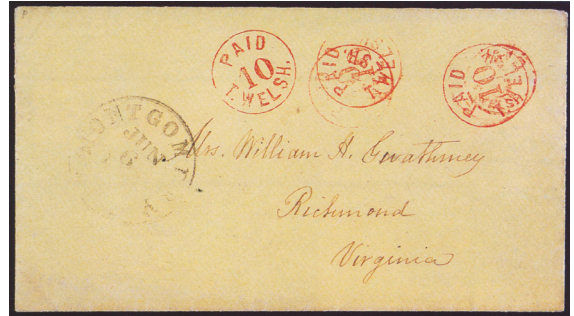 PAID
10
T. WELSH.
PAID
10
T. WELSH.
PAID
10
T. WELSH.
MONTGOMERY
JUN
16
Mrs. William H. Gwathmey
Richmond
Virginia